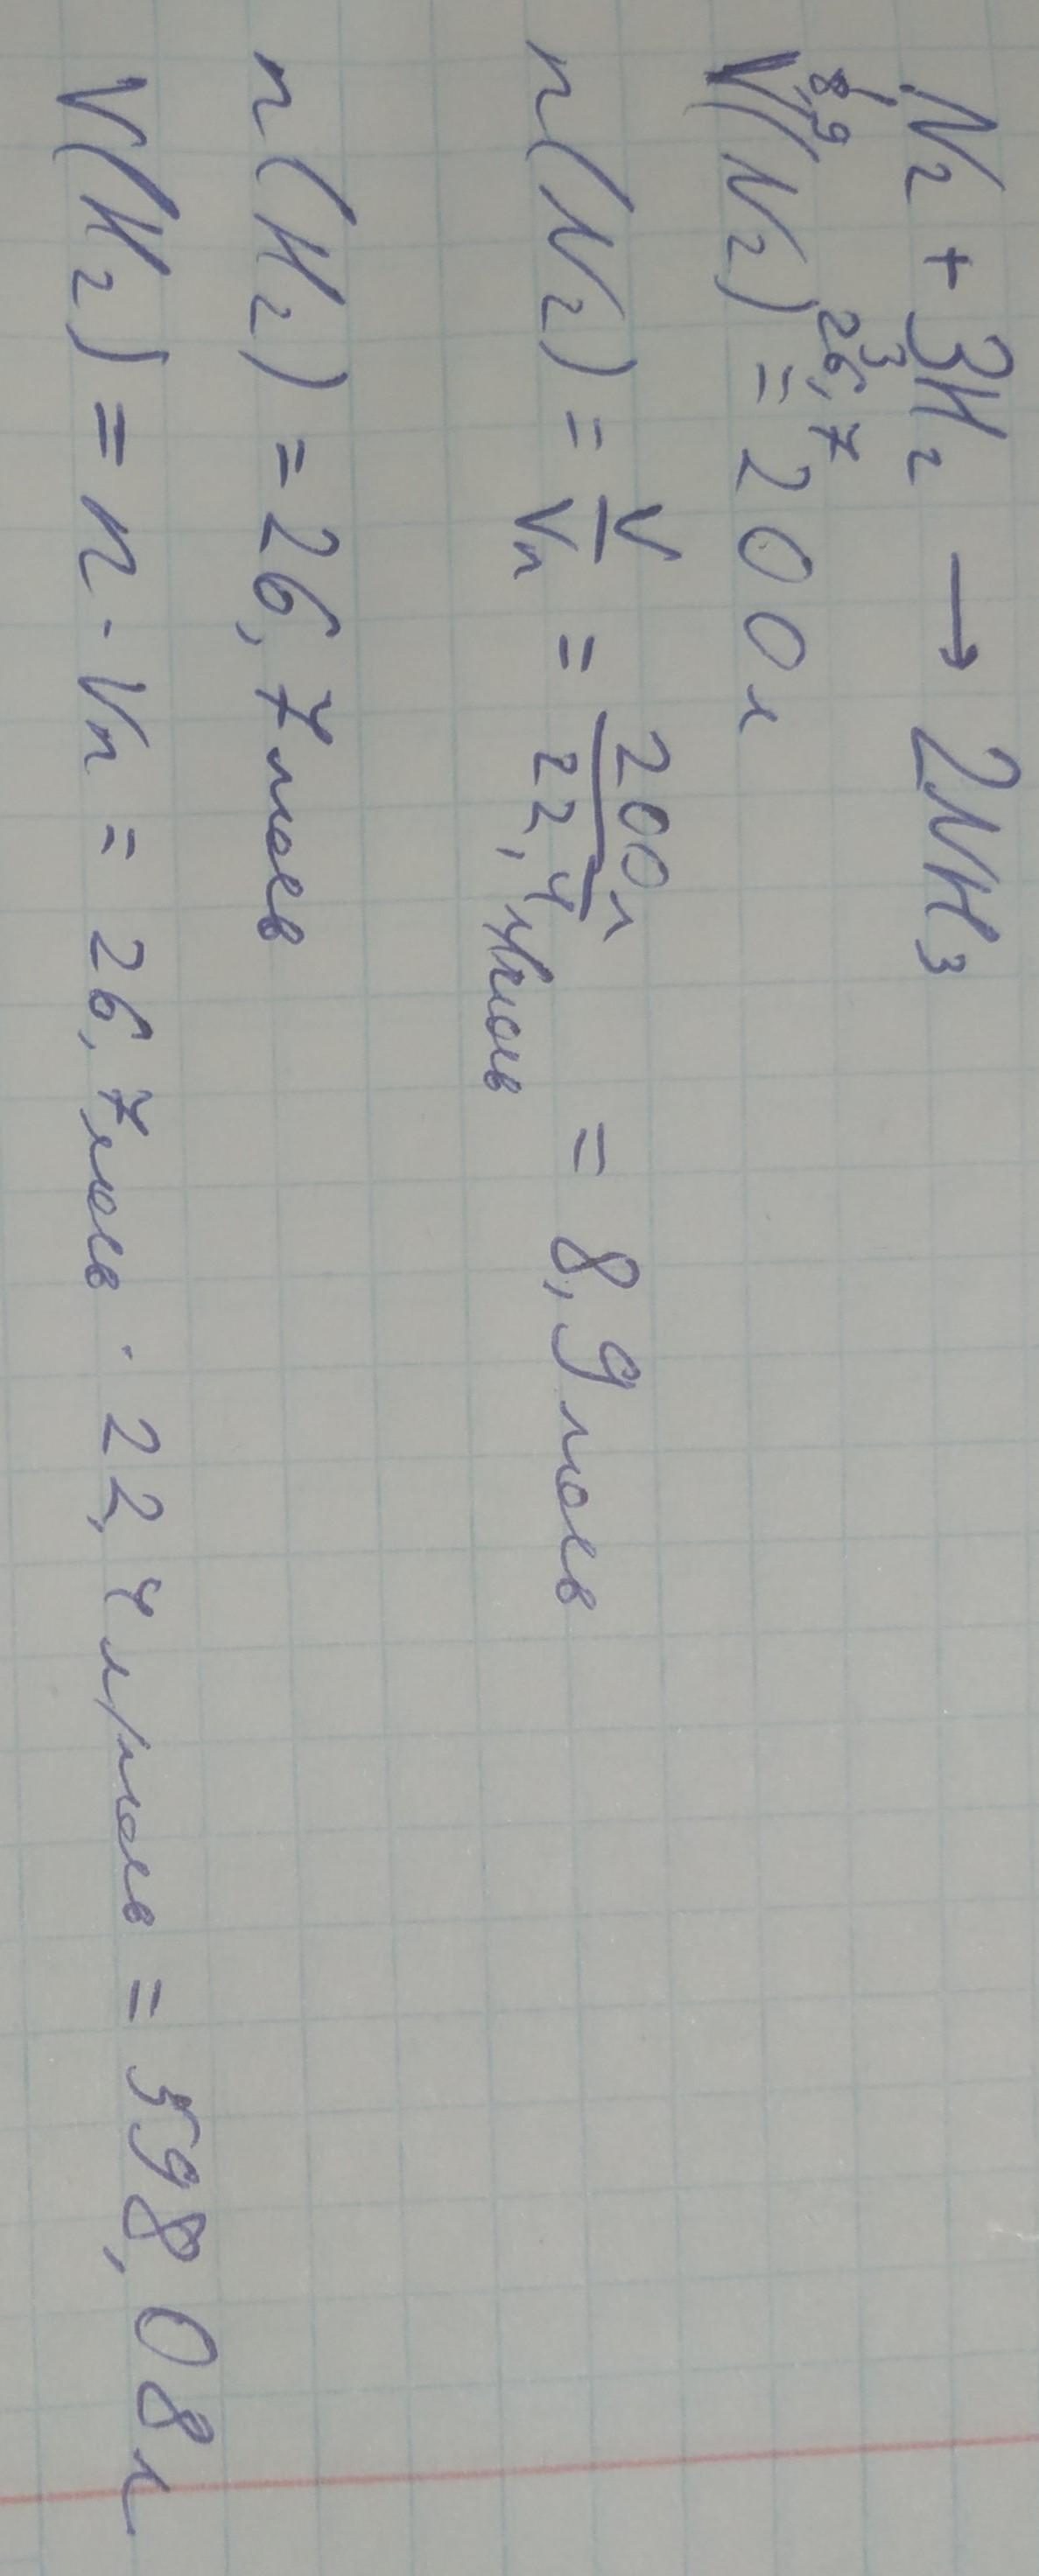 N₂ + 3H₂ → 2NH₃
1 3
8,9 26,7
V(N₂) = 200 л
n(N₂) = V/Vn = 200 л/22,4 л/моль = 8,9 моль
n(H₂) = 26,7 моль
V(H₂) = n · Vn = 26,7 моль · 22,4 л/моль = 598,08 л